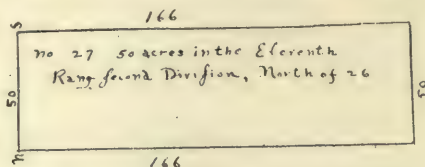 166
S
no 27 50 acres in the Eleventh
Rang second Division, North of 26
50
50
n
166